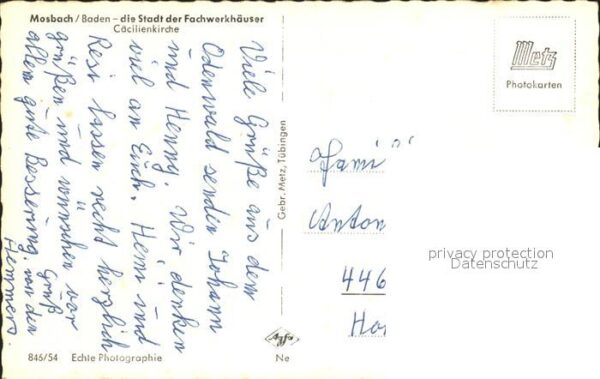 Mosbach / Baden – die Stadt der Fachwerkhäuser
Cäcilienkirche
Viele Grüße aus dem
Odenwald senden Johann
und Henny. Wir denken
viel an Euch. Heini und
Resi lassen recht herzlich
grüßen und wünschen vor
allem gute Besserung, von den
Gruß
Hemmers.
Gebr. Metz, Tübingen
Metz
Photokarten
Fami
Anton
446
Ho
privacy protection
Datenschutz
Agfa
846/54 Echte Photographie Ne